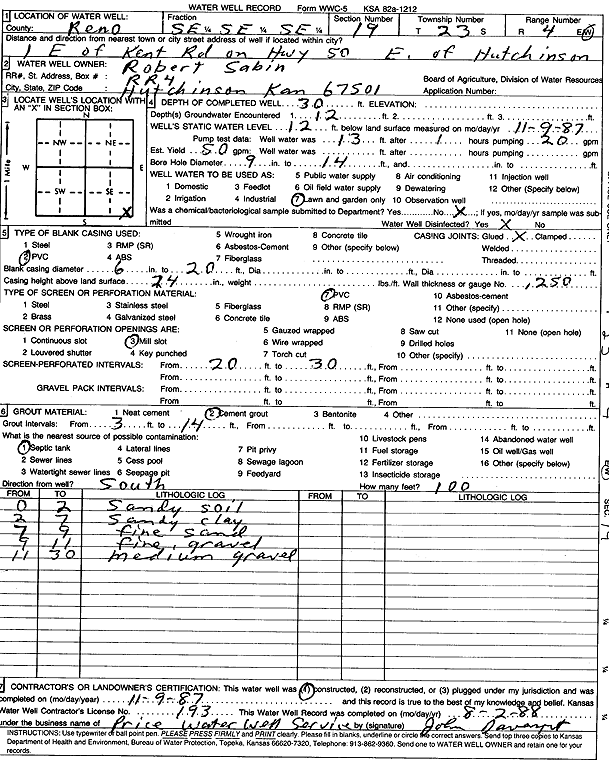 WATER WELL RECORD Form WWC-5 KSA 82a-1212
1 LOCATION OF WATER WELL: Fraction Section Number Township Number Range Number
County: Reno SE ¼ SE ¼ SE ¼ 19 T 23 S R 4 E/W
Distance and direction from nearest town or city street address of well if located within city?
1 E of Kent Rd on Hwy 50 E. of Hutchinson
2 WATER WELL OWNER: Robert Sabin
RR#, St. Address, Box # : RR4 Board of Agriculture, Division of Water Resources
City, State, ZIP Code : Hutchinson Kan 67501 Application Number:
3 LOCATE WELL'S LOCATION WITH AN "X" IN SECTION BOX:
N
NW NE
W E
SW SE
X
S
1 Mile
4 DEPTH OF COMPLETED WELL 30 ft. ELEVATION:
Depth(s) Groundwater Encountered 1. 12 ft. 2. ft. 3. ft.
WELL'S STATIC WATER LEVEL 12 ft. below land surface measured on mo/day/yr 11-9-87
Pump test data: Well water was 13 ft. after 1 hours pumping 20 gpm
Est. Yield 50 gpm: Well water was ft. after hours pumping gpm
Bore Hole Diameter 9 in. to 14 ft., and in. to ft.
WELL WATER TO BE USED AS: 5 Public water supply 8 Air conditioning 11 Injection well
1 Domestic 3 Feedlot 6 Oil field water supply 9 Dewatering 12 Other (Specify below)
2 Irrigation 4 Industrial 7 Lawn and garden only 10 Observation well
Was a chemical/bacteriological sample submitted to Department? Yes No X; If yes, mo/day/yr sample was submitted
Water Well Disinfected? Yes X No
5 TYPE OF BLANK CASING USED: 5 Wrought iron 8 Concrete tile CASING JOINTS: Glued X Clamped
1 Steel 3 RMP (SR) 6 Asbestos-Cement 9 Other (specify below) Welded
2 PVC 4 ABS 7 Fiberglass Threaded
Blank casing diameter 6 in. to 20 ft., Dia in. to ft., Dia in. to ft.
Casing height above land surface 24 in., weight lbs./ft. Wall thickness or gauge No. .250
TYPE OF SCREEN OR PERFORATION MATERIAL: 7 PVC 10 Asbestos-cement
1 Steel 3 Stainless steel 5 Fiberglass 8 RMP (SR) 11 Other (specify)
2 Brass 4 Galvanized steel 6 Concrete tile 9 ABS 12 None used (open hole)
SCREEN OR PERFORATION OPENINGS ARE: 5 Gauzed wrapped 8 Saw cut 11 None (open hole)
1 Continuous slot 3 Mill slot 6 Wire wrapped 9 Drilled holes
2 Louvered shutter 4 Key punched 7 Torch cut 10 Other (specify)
SCREEN-PERFORATED INTERVALS: From 20 ft. to 30 ft., From ft. to ft.
From ft. to ft., From ft. to ft.
GRAVEL PACK INTERVALS: From ft. to ft., From ft. to ft.
From ft. to ft., From ft. to ft.
6 GROUT MATERIAL: 1 Neat cement 2 Cement grout 3 Bentonite 4 Other
Grout Intervals: From 3 ft. to 14 ft., From ft. to ft., From ft. to ft.
What is the nearest source of possible contamination: 10 Livestock pens 14 Abandoned water well
1 Septic tank 4 Lateral lines 7 Pit privy 11 Fuel storage 15 Oil well/Gas well
2 Sewer lines 5 Cess pool 8 Sewage lagoon 12 Fertilizer storage 16 Other (specify below)
3 Watertight sewer lines 6 Seepage pit 9 Feedyard 13 Insecticide storage
Direction from well? South How many feet? 100
FROM TO LITHOLOGIC LOG FROM TO LITHOLOGIC LOG
0 2 Sandy soil
2 7 Sandy clay
7 9 fine sand
9 11 fine gravel
11 30 medium gravel
7 CONTRACTOR'S OR LANDOWNER'S CERTIFICATION: This water well was (1) constructed, (2) reconstructed, or (3) plugged under my jurisdiction and was
completed on (mo/day/year) 11-9-87 and this record is true to the best of my knowledge and belief. Kansas
Water Well Contractor's License No. 193 This Water Well Record was completed on (mo/day/yr) 8-2-88
under the business name of Price Water Well Service by (signature) John
INSTRUCTIONS: Use typewriter or ball point pen. PLEASE PRESS FIRMLY and PRINT clearly. Please fill in blanks, underline or circle the correct answers. Send top three copies to Kansas
Department of Health and Environment, Bureau of Water Protection, Topeka, Kansas 66620-7320, Telephone: 913-862-9360. Send one to WATER WELL OWNER and retain one for your
records.